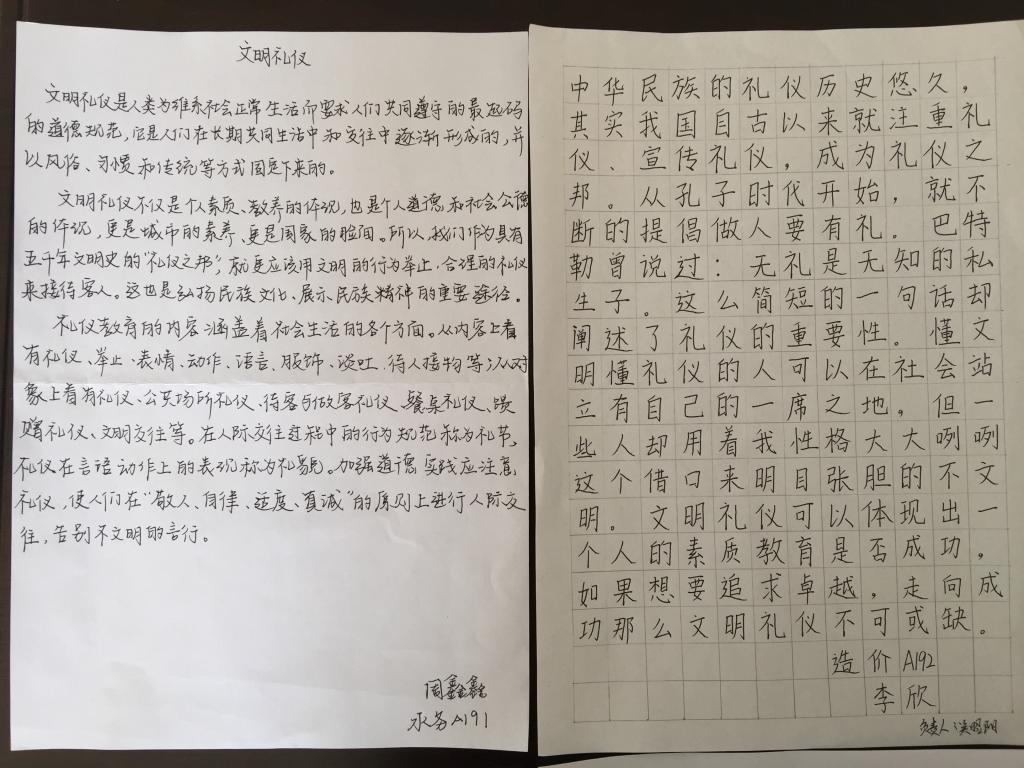 文明礼仪
文明礼仪是人类为维系社会正常生活而要求人们共同遵守的最起码
的道德规范,它是人们在长期共同生活中和交往中逐渐形成的,并
以风俗、习惯和传统等方式固定下来的。
文明礼仪不仅是个人素质、教养的体现,也是个人道德和社会公德
的体现,更是城市的素养、更是国家的脸面。所以,我们作为具有
五千年文明史的“礼仪之邦”,就更应该用文明的行为举止,合理的礼仪
来接待客人。这也是弘扬民族文化、展示民族精神的重要途径。
礼仪教育的内容涵盖着社会生活的各个方面。从内容上看
有礼仪、举止、表情、动作、语言、服饰、谈吐、待人接物等;从对
象上看有礼仪、公共场所礼仪、待客与做客礼仪、餐桌礼仪、馈
赠礼仪、文明交往等。在人际交往过程中的行为规范称为礼节,
礼仪在言语动作上的表现称为礼貌。加强道德实践应注意
礼仪,使人们在“敬人、自律、适度、真诚”的原则上进行人际交
往,告别不文明的言行。
周鑫鑫
水务A191
中华民族的礼仪历史悠久,
其实我国自古以来就注重礼
仪、宣传礼仪,成为礼仪之
邦。从孔子时代开始,就不
断的提倡做人要有礼。巴特
勒曾说过:无礼是无知的私
生子。这么简短的一句话却
阐述了礼仪的重要性。懂文
明懂礼仪的人可以在社会站
立有自己的一席之地,但一
些人却用着我性格大大咧咧
这个借口来明目张胆的不文
明。文明礼仪可以体现出一
个人的素质教育是否成功,
如果想要追求卓越,走向成
功那么文明礼仪不可或缺。
造价A192
李欣